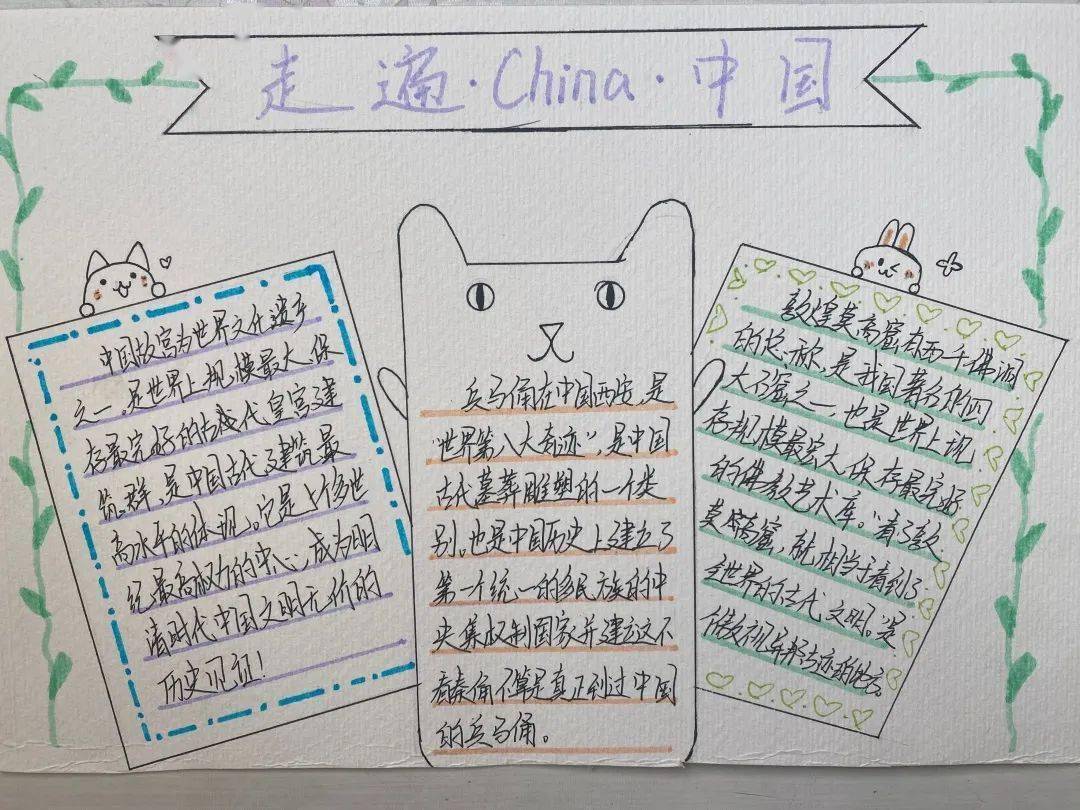 走遍·China·中国
中国故宫为世界文化遗产
之一,是世界上规模最大、保
存最完好的古代皇宫建
筑群,是中国古代建筑最
高水平的体现。它是上个多世
纪最高权力的中心,成为明
清时代中国文明无价的
历史见证!
兵马俑在中国西安,是
“世界第八大奇迹”,是中国
古代墓葬雕塑的一个类
别。也是中国历史上建立了
第一个统一的多民族的中
央集权制国家并建立这不
看秦俑不算是真正到过中国
的兵马俑。
敦煌莫高窟有西千佛洞
的总称,是我国著名的四
大石窟之一,也是世界上现
存规模最宏大,保存最完好
的佛教艺术库。“看了敦
莫高窟,就相当于看到了
全世界的古代文明”是